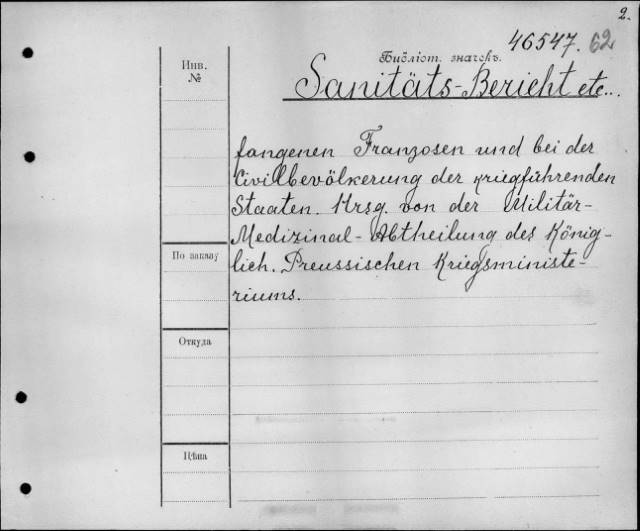 2.
46547. 62
Библіот. значекъ.
Инв.
№
Sanitäts-Bericht etc...
fangenen Franzosen und bei der
Civilbevölkerung der kriegführenden
Staaten. Hrsg. von der Militär-
Medizinal-Abtheilung des König-
lich. Preussischen Kriegsministe-
riums.
По заказу
Откуда
Цѣна